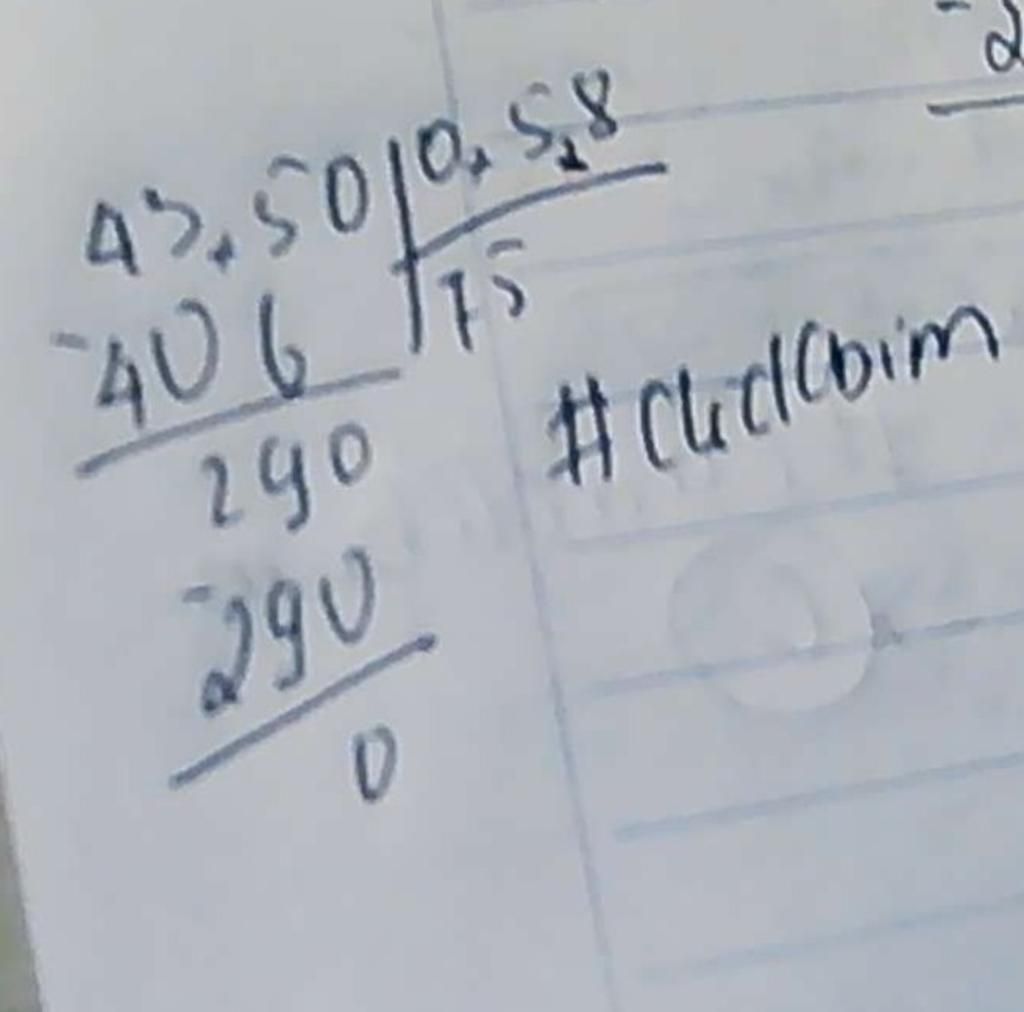 -2
43.50 0.5,8
-406 75
290
-290
0